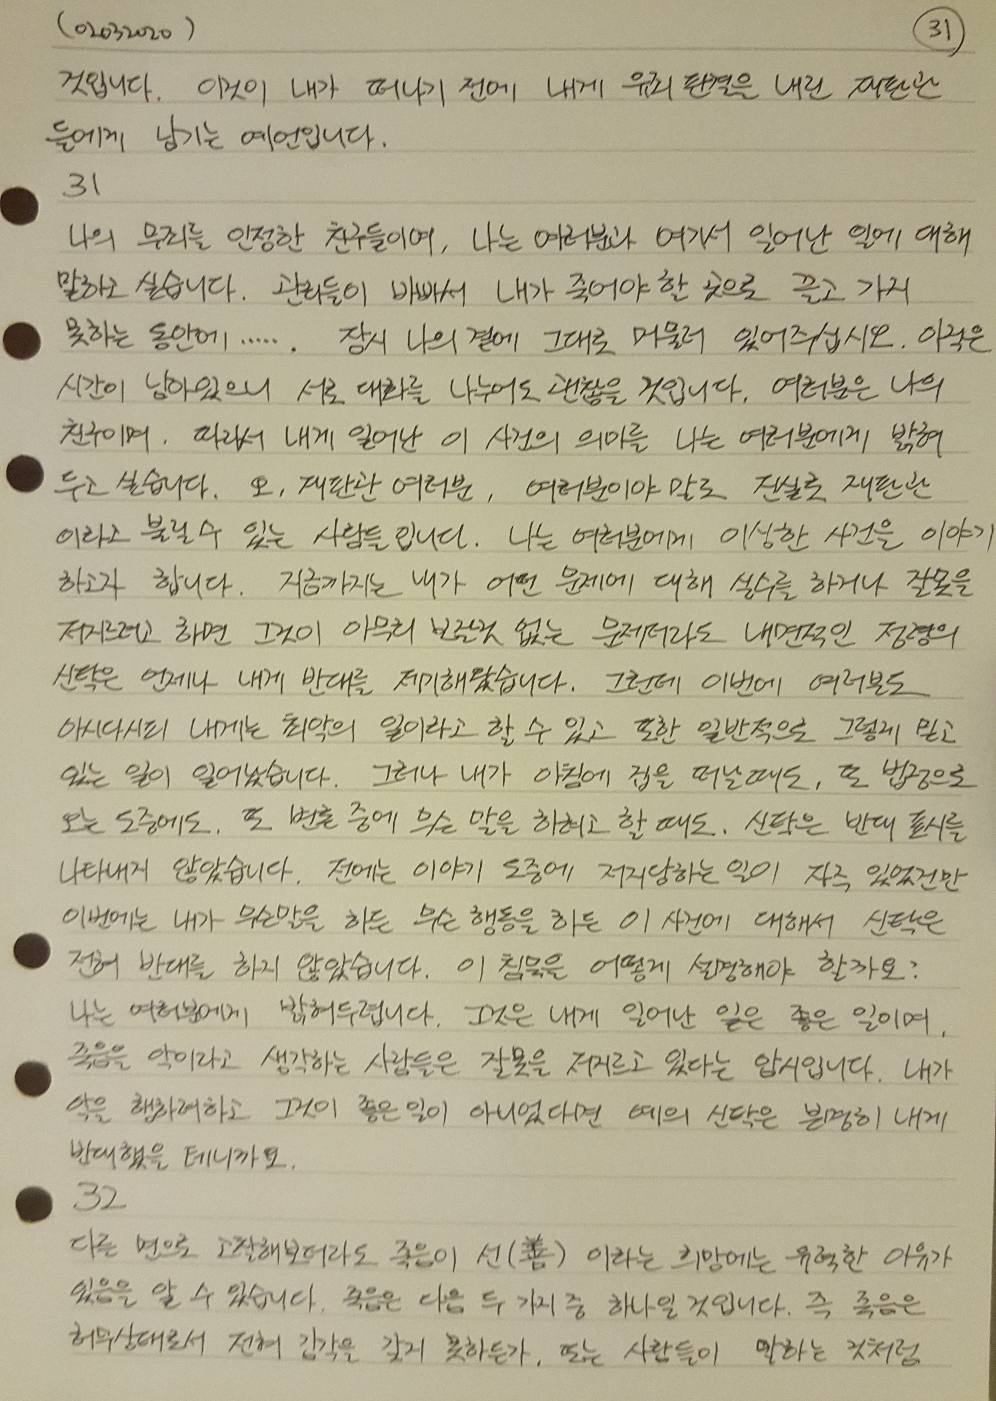 (02032020)
31
것입니다. 이것이 내가 떠나기 전에 내게 유죄 판결을 내린 재판관
들에게 남기는 예언입니다.
31
나의 무죄를 인정한 친구들이여, 나는 여러분과 여기서 일어난 일에 대해
말하고 싶습니다. 관리들이 바빠서 내가 죽어야 할 곳으로 끌고 가지
못하는 동안에 ...... 잠시 나의 곁에 그대로 머물러 있어주십시오. 아직은
시간이 남아있으니 서로 대화를 나누어도 괜찮을 것입니다. 여러분은 나의
친구이며, 따라서 내게 일어난 이 사건의 의미를 나는 여러분에게 밝혀
두고 싶습니다. 오, 재판관 여러분, 여러분이야 말로 진실로 재판관
이라고 불릴 수 있는 사람들입니다. 나는 여러분에게 이상한 사건을 이야기
하고자 합니다. 지금까지는 내가 어떤 문제에 대해 실수를 하거나 잘못을
저지르려고 하면 그것이 아무리 보잘것 없는 문제더라도 내면적인 정령의
신탁은 언제나 내게 반대를 제기해왔습니다. 그런데 이번에 여러분도
아시다시피 내게는 최악의 일이라고 할 수 있고 또한 일반적으로 그렇게 믿고
있는 일이 일어났습니다. 그러나 내가 아침에 집을 떠날 때도, 또 법정으로
오는 도중에도, 또 변론 중에 무슨 말을 하려고 할 때도, 신탁은 반대 표시를
나타내지 않았습니다. 전에는 이야기 도중에 저지당하는 일이 자주 있었건만
이번에는 내가 무슨말을 하든 무슨 행동을 하든 이 사건에 대해서 신탁은
전혀 반대를 하지 않았습니다. 이 침묵을 어떻게 설명해야 할까요?
나는 여러분에게 밝혀두렵니다. 그것은 내게 일어난 일은 좋은 일이며,
죽음을 악이라고 생각하는 사람들은 잘못을 저지르고 있다는 암시입니다. 내가
악을 행하려하고 그것이 좋은일이 아니었다면 예의 신탁은 분명히 내게
반대했을 테니까요.
32
다른 면으로 고찰해보더라도 죽음이 선(善)이라는 희망에는 유력한 이유가
있음을 알 수 있습니다. 죽음은 다음 두 가지 중 하나일 것입니다. 즉 죽음은
허무상태로서 전혀 감각을 갖지 못하든가, 또는 사람들이 말하는 것처럼